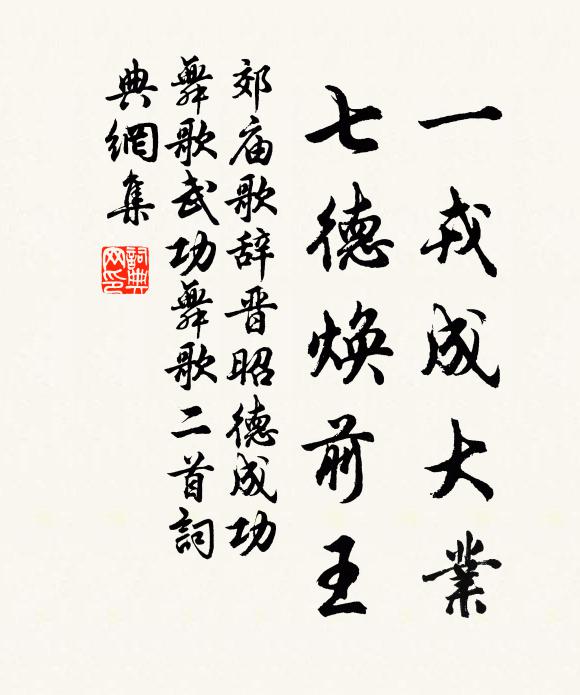 一戎成大業
七德煥前王
郊庙歌辞晋昭德成功
舞歌武功舞歌二首詞
典網集
詞典
网印